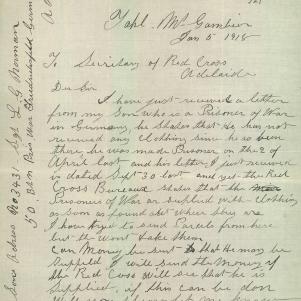 Yahl. Mt Gambier
Jan 5 1918
To Secretary of Red Cross
Adelaide
De Sir
I have just received a letter
from my Son who is a Prisoner of War
in Germany he states that he has not
received any Clothing since he as been
there he was made Prisoner on the 2 of
April last and his letter I just received
is dated Sept 30 last and yet the Red
Cross Bureaux states that the
Prisoners of War ar suplied with clothing
as soon as found out where they are
I have tryed to send Parcels from here
but the wont take them
Can Money be sent so that He may be
Supplied I will send the Money if
the Red Cross will see that he is
Supplied, if this can be don
Sons Adress No 3431 Sgt L G Norman
50 Batn Pris War